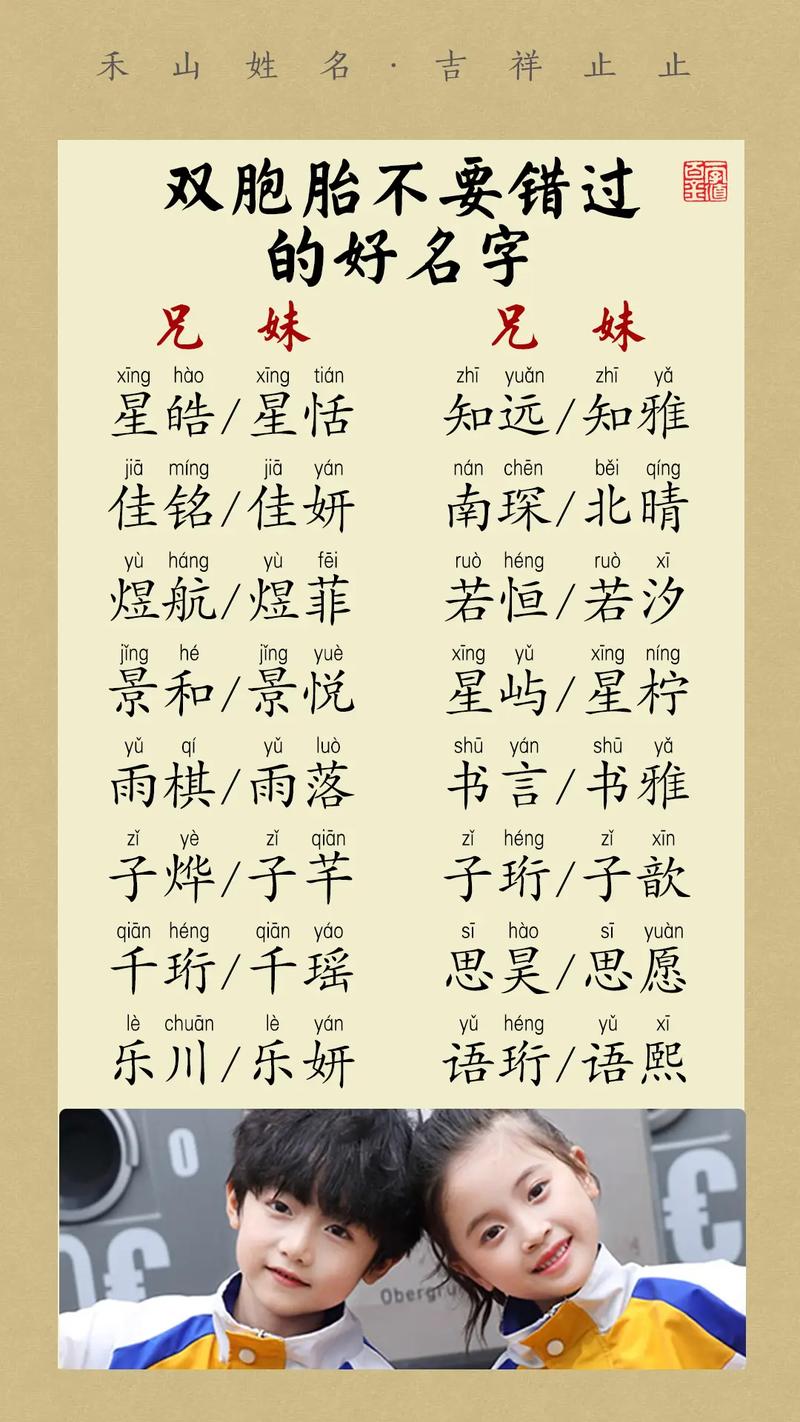 禾山姓名·吉祥止止
双胞胎不要错过
的好名字
兄 妹 兄 妹
xīng hào xīng tián zhī yuǎn zhī yǎ
星皓/星恬 知远/知雅
jiā míng jiā yán nán chēn běi qíng
佳铭/佳妍 南琛/北晴
yù háng yù fēi ruò héng ruò xī
煜航/煜菲 若恒/若汐
jǐng hé jǐng yuè xīng yǔ xīng níng
景和/景悦 星屿/星柠
yǔ qí yǔ luò shū yán shū yǎ
雨棋/雨落 书言/书雅
zǐ yè zǐ qiān zǐ héng zǐ xīn
子烨/子芊 子珩/子歆
qiān héng qiān yáo sī hào sī yuàn
千珩/千瑶 思昊/思愿
lè chuān lè yán yǔ héng yǔ xī
乐川/乐妍 语珩/语熙
0
0€ €
Obergru